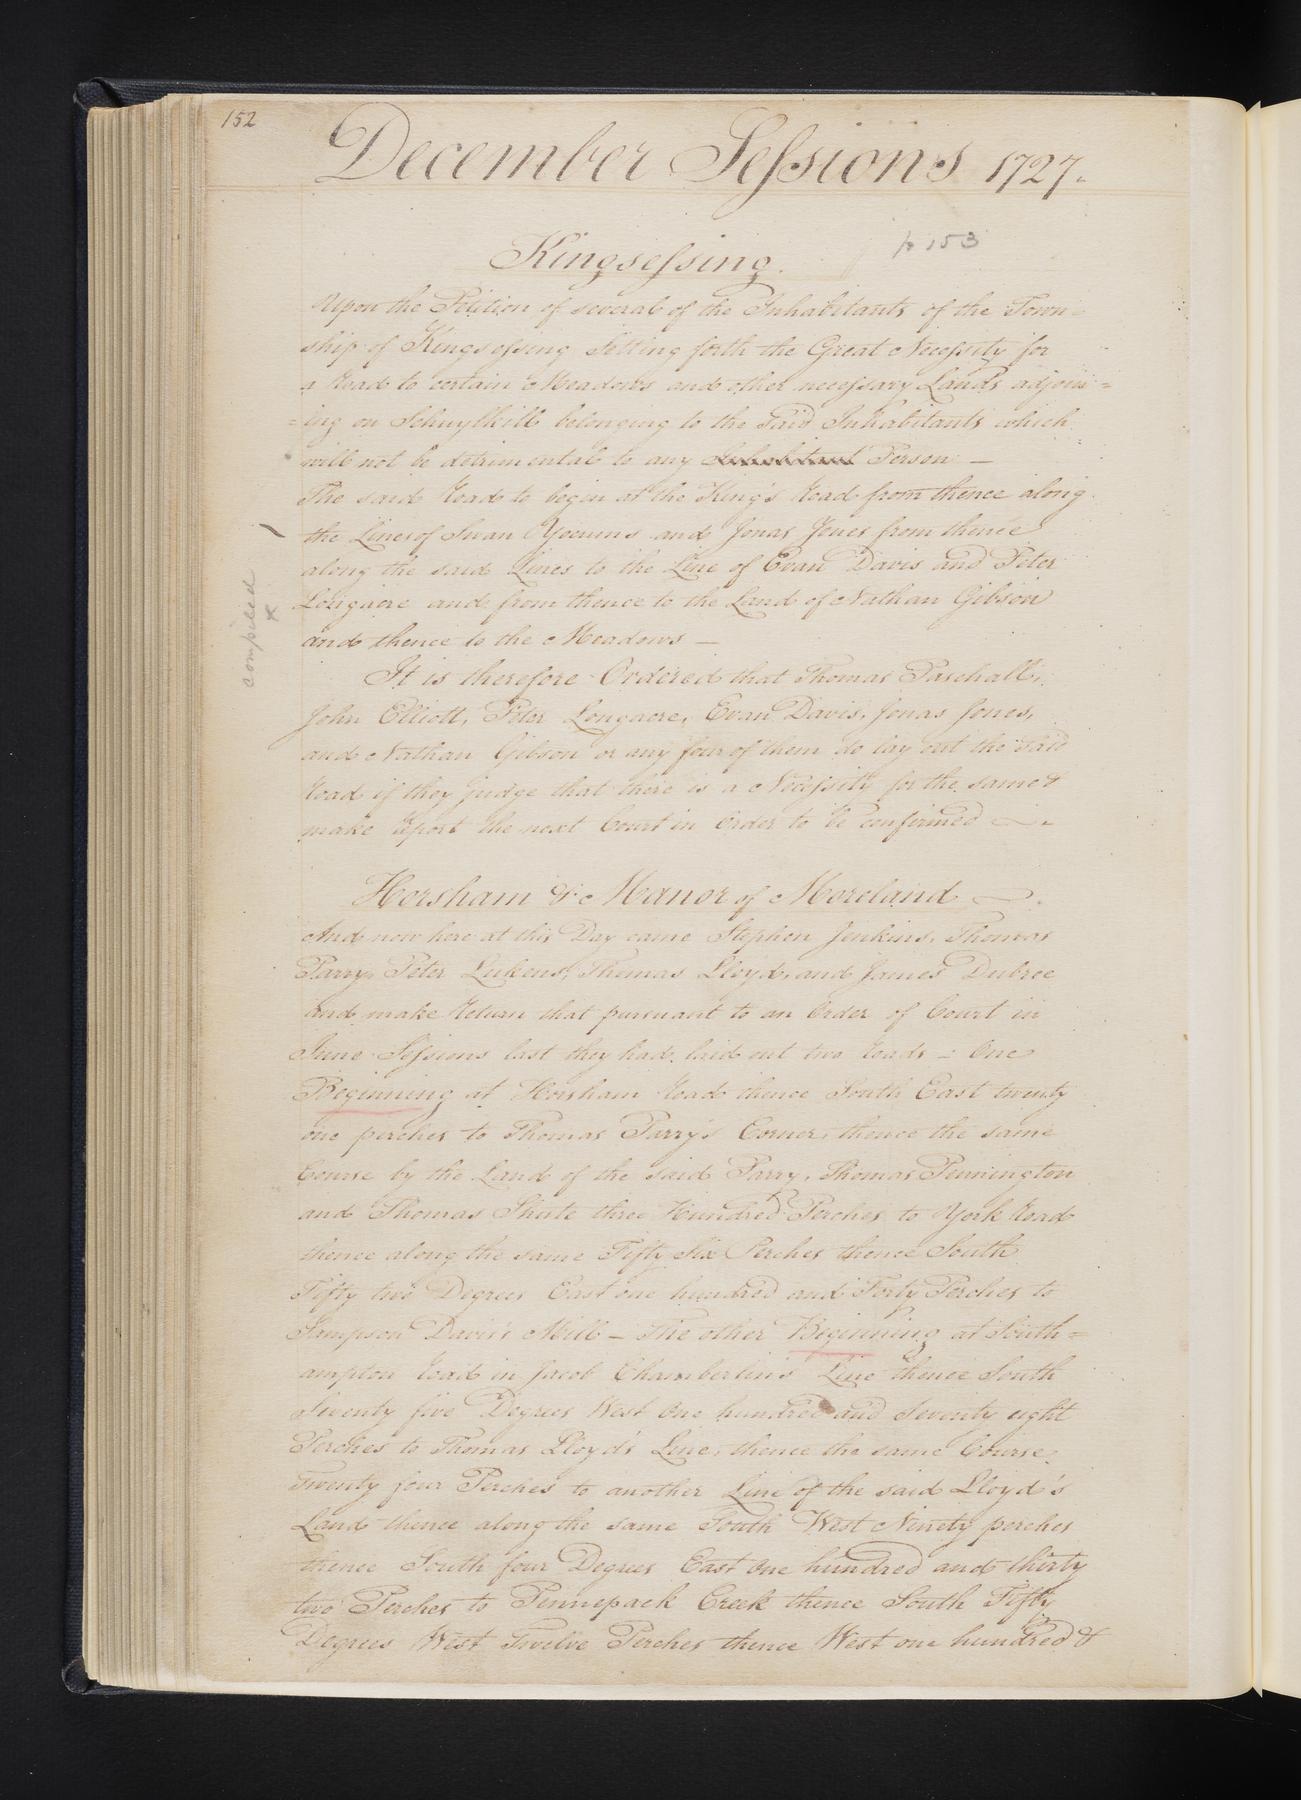 152
December Sessions 1727.
Kingsessing.
p 153
Upon the Petition of several of the Inhabitants of the Town=
ship of Kingsessing Setting forth the Great Necessity for
a Road to certain Meadows and other necessary Lands adjoin=
=ing on Schuylkill belonging to the said Inhabitants which
will not be detrimental to any Inhabitant Person —
The said Road to begin at the King's Road from thence along
the Lines of Swan Yocums and Jonas Jones from thence
along the said Lines to the Line of Evan Davis and Peter
Longacre and from thence to the Land of Nathan Gibson
and thence to the Meadows —
compiled
x
It is therefore Ordered that Thomas Paschall,
John Elliott, Peter Longacre, Evan Davis, Jonas Jones,
and Nathan Gibson or any four of them do lay out the said
Road if they judge that there is a Necessity for the same &
make Report the next Court in Order to be confirmed
Horsham & Manor of Moreland
And now here at this Day came Stephen Jenkins, Thomas
Parry, Peter Lukens, Thomas Lloyd, and James Dubree
and make Return that pursuant to an Order of Court in
June Sessions last they had laid out two Roads — One
Beginning at Horsham Road thence South East twenty
one perches to Thomas Parry's Corner, thence the same
Course by the Land of the said Parry, Thomas Pennington
and Thomas Shute three Hundred Perches to York Road
thence along the same Fifty Six Perches thence South
Fifty two Degrees East one hundred and Forty Perches to
Sampson Davis's Mill — The other Beginning at South=
ampton Road in Jacob Chamberlin's Line thence South
Seventy five Degrees West One hundred and Seventy eight
Perches to Thomas Lloyd's Line, thence the same Course
Twenty four Perches to another Line of the said Lloyd's
Land thence along the same South West Ninety perches
thence South four Degrees East One hundred and thirty
two Perches to Pennepack Creek thence South Fifty
Degrees West Twelve Perches thence West one hundred &